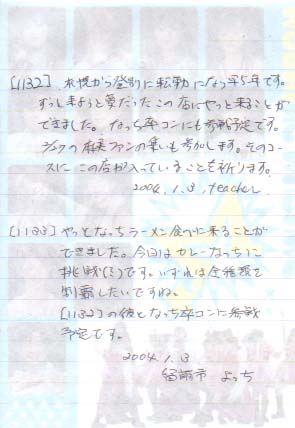 [1132] 札幌から登別に転勤になって早5年です。
ずっと来ようと夢だったこの店にやっと来ることが
できました。なっち卒コンにも参戦予定です。
麻美ファンの集いも参加します。そのコー
スに この店が入っていることを祈ります。
2004.1.3. teacher.
[1133] やっとなっちラーメン食べに来ることが
できました。今回はカレーなっちに
挑戦(ミ)です。いずれは全種類を
制覇したいですね。
[1132]の彼となっち卒コンに参戦
予定です。
2004.1.3
留萌市 よっち